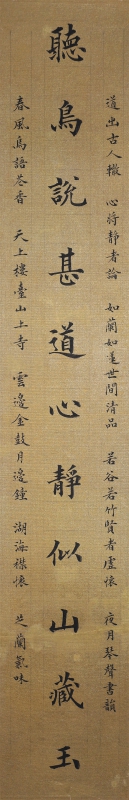 道出古人轍 心將靜者論 如蘭如蕙世間清品 若谷若竹賢者虛懷 夜月琴聲書韻
聽鳥說甚道心靜似山藏玉
春風鳥語花香 天上樓臺山上寺 雲邊金鼓月邊鍾 湖海襟懷 芝蘭氣味